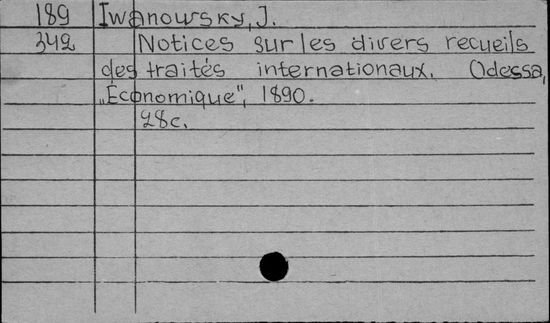 189 Iwanowsky, J.
342 Notices sur les divers recueils
des traités internationaux. Odessa,
„Économique", 1890.
28c.